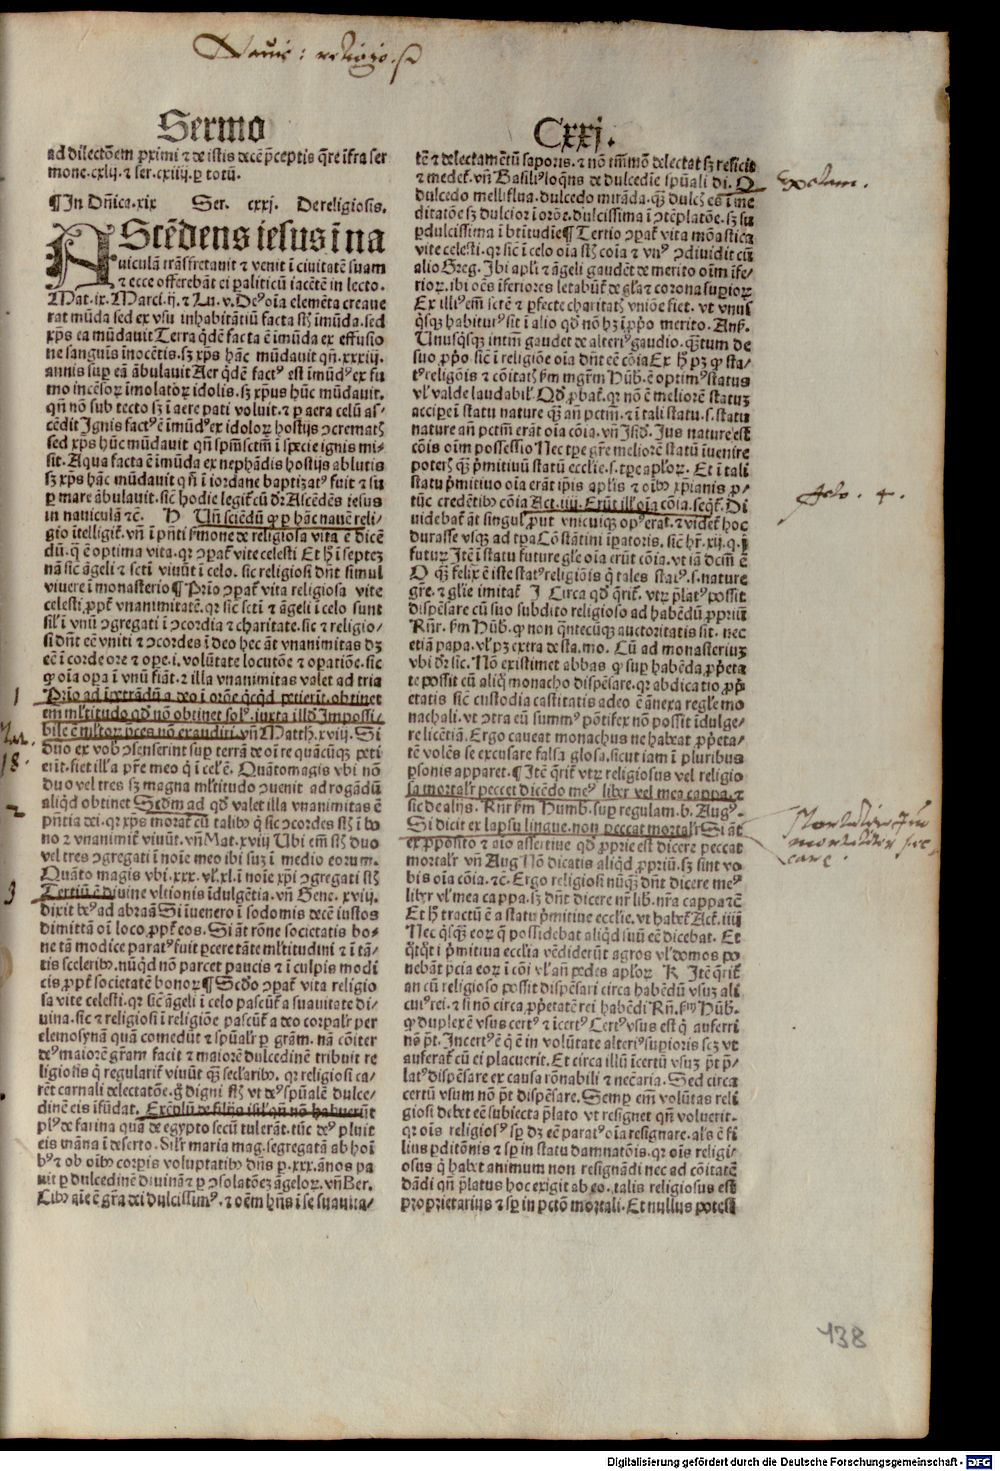 Sermo
ad dilectõem ꝓximi ⁊ de istis decẽ p̃ceptis q̃re ĩfra ser
mone.cxlij.⁊ ser.cxiiij.ꝑ totũ.
¶In Dñica.xix Ser. cxxj. De religiosis.
AScẽdens iesus ĩ na
uiculã trãsfretauit ⁊ venit ĩ ciuitatẽ suam
⁊ ecce offerebãt ei paliticũ iacẽtẽ in lecto.
Mat.ix.Marci.ij.⁊ Lu.v.Deꝰ oĩa elemẽta creaue
rat mũda sed ex vsu inhabitãtiũ facta sũt ĩmũda.sed
xp̃s ea mũdauit Terra qdẽ facta ẽ ĩmũda ex effusio
ne sanguĩs ĩnocẽtis.sꝫ xp̃s hãc mũdauit qñ.xxxiij.
annis suꝑ eã ãbulauit Aer qdẽ factꝰ est ĩmũdꝰ ex fu
mo incẽsoꝝ ĩmolatoꝝ idolis.sꝫ xp̃us hũc mũdauit.
qñ nõ sub tecto sꝫ ĩ aere pati voluit.⁊ ꝑ aera celũ as⸗
cẽdit Ignis factꝰ ẽ ĩmũdꝰ ex idoloꝝ hostijs ↄcrematis
sed xp̃s hũc mũdauit qñ sp̃m sctm̃ ĩ sp̃cie ignis mi⸗
sit.Aqua facta ẽ ĩmũda ex nephãdis hostijs ablutis
sꝫ xp̃s hãc mũdauit qñ ĩ iordane baptizatꝰ fuit ⁊ su
ꝑ mare ãbulauit.sic hodie legit̃ cũ dr̃.Ascẽdẽs iesus
in nauiculã ⁊c̃. H Uñ sciẽdũ ꝙ ꝑ hãc nauẽ reli⸗
gio ĩtelligit̃.vñ ĩ pñti ẜmone de religiosa vita ẽ dicẽ
dũ.q̃ ẽ optima vita.qꝛ ↄꝑat̃ vite celesti Et h̃ ĩ septẽ
nã sic ãgeli ⁊ scti viuũt ĩ celo.sic religiosi dñt simul
viuere ĩ monasterio ¶Prĩo ↄꝑat̃ vita religiosa vite
celesti.ꝓpt̃ vnanimitatẽ.qꝛ sic scti ⁊ ãgeli ĩ celo sunt
sil̃ ĩ vnũ ↄgregati ĩ ↄcordia ⁊ charitate.sic ⁊ religio⸗
si dñt eẽ vniti ⁊ ↄcordes ĩ deo hec ãt vnanimitas dꝫ
eẽ ĩ corde ore ⁊ ope.i.volũtate locutõe ⁊ opatiõe.sic
ꝙ oĩa opa ĩ vnũ fiãt.⁊ illa vnanimitas valet ad tria
Prĩo ad ĩpetrãdũ a deo ĩ orõe qcqd petierit.obtinet
em̃ ml̃titudo qd nõ obtinet solꝰ.iuxta illd̃.Impossi⸗
bile ẽ ml̃toꝝ p̃ces nõ exaudiri vñ Matth̃.xviij.Si
duo ex vobis ↄsenserint suꝑ terrã de oĩ re quacũqꝫ peti
erĩt.fiet illꝰ a p̃re meo q ĩ cel̃ ẽ.Quãtomagis vbi nõ
duo vel tres sꝫ magna ml̃titudo ↄuenit ad rogãdũ
aliqd obtinet Scdm ad qd valet illa vnanimitas ẽ
pñtia dei.qꝛ xp̃s morat̃ cũ talibꝰ q sic ↄcordes sũt ĩ bo
no ⁊ vnanimit̃ viuũt.vñ Mat.xviij Ubi em̃ sũt duo
vel tres ↄgregati ĩ noĩe meo ibi suꝫ ĩ medio eorum.
Quãto magis vbi.xxx.vl̃.xl.ĩ noĩe xp̃i ↄgregati sũt
Tertiũ ẽ diuine vltionis ĩdulgẽtia.vñ Gene.xviij.
dixit deꝰ ad abraã Si ĩuenero ĩ sodomis decẽ iustos
dimittã oĩ loco.ꝓpt̃ eos.Si ãt rõne societatis bo⸗
ne tã modice paratꝰ fuit ꝑcere tãte ml̃titudini ⁊ ĩ tã⸗
tis sceleribꝰ.nũqd nõ parcet paucis ⁊ ĩ culpis modi
cis ꝓpt̃ societatẽ bonoꝝ ¶Scdo ↄꝑat̃ vita religio
sa vite celesti.qꝛ sic ãgeli ĩ celo pascũt̃ a suauitate di⸗
uina.sic ⁊ religiosi ĩ religiõe pascũt̃ a deo corpal̃r per
elemosynã quã comedũt ⁊ spũal̃r ꝑ gr̃am.nã cõiter
deꝰ maiorẽ gr̃am facit ⁊ maiorẽ dulcedinẽ tribuit re
ligiosis q regularit̃ viuũt qꝫ secl̃aribꝰ.qꝛ religiosi ca⸗
rẽt carnali delectatõe.g̃ digni sũt vt deꝰ spũalẽ dulce⸗
dinẽ eis ĩfũdat.Exẽplũ de filijs isrl̃ qñ nõ habuerũt
plꝰ de farina quã de egypto secũ tulerãt.tũc deꝰ pluit
eis mãna ĩ deserto.Sil̃r maria mag.segregatã ab hoĩ
bꝰ ⁊ ob oĩbꝰ corpis voluptatibꝰ dñs ꝑ.xxx.ãnos pa
uit ꝑ dulcedinẽ diuinã ⁊ ꝑ ↄsolatõeꝫ ãgeloꝝ.vñ Ber.
Cibꝰ aĩe ẽ gr̃a dei dulcissimꝰ.⁊ oẽm hñs ĩ se suauita⸗
1
18.
2
3
Cxxj.
tẽ ⁊ delectamẽtũ saporis.⁊ nõ tm̃mõ delectat sꝫ reficit
⁊ medet̃.vñ Basiliꝰ loqñs de dulcedĩe spũali di.O
dulcedo melliflua.dulcedo mirãda.qꝫ dulcis es ĩ me
ditatõe sꝫ dulcior ĩ orõe.dulcissima ĩ ↄtẽplatõe.sꝫ su
ꝑdulcissima ĩ btitudĩe ¶Tertio ↄꝑat̃ vita mõastica
vite celesti.qꝛ sic ĩ celo oĩa sũt cõia ⁊ vnꝰ ↄdiuidit cũ
alio Greg.Ibi apl̃i ⁊ ãgeli gaudẽt de merito oĩm ĩfe⸗
rioꝝ.ibi oẽs ĩferiores letabũt̃ de gl̃a ⁊ corona supioꝝ
Ex illiꝰ em̃ scrẽ ⁊ ꝑfecte charitatis vniõe fiet.vt vnusꝰ
qsqꝫ habiturꝰ sit ĩ alio qd nõ hꝫ ĩ ꝓpo merito.Anf.
Unusqsqꝫ intm̃ gaudet de alteriꝰ gaudio.qꝫtum de
suo ꝓpo sic ĩ religiõe oĩa dñt eẽ cõia Ex h̃ pꝫ ꝙ sta⸗
tꝰ religiõis ⁊ cõitatis ẜm mgr̃m Hũb.ẽ optimꝰ status
vl̃ valde laudabil̃.Qd ꝓbat̃.qꝛ nõ ẽ meliorẽ statuꝫ
accipe ĩ statu nature qꝫ añ pctm̃.⁊ ĩ tali statu.s.statu
nature añ pctm̃ erãt oĩa cõia.vñ Isid̃.Jus nature est
cõis oĩm possessio Nec tpe gr̃e meliorẽ statũ ĩuenire
poteris qꝫ p̃mitiuũ statũ ecclie.s.tpe apl̃oꝝ.Et ĩ tali
statu p̃mitiuo oĩa erãt ip̃is apl̃is ⁊ oĩbꝰ xp̃ianis ꝑ⸗
tũc credẽtibꝰ cõia Act.iiij.Erãt ill̃ oĩa cõia.seqt̃.Di
uidebat̃ ãt singulꝰ ꝓut vnicuiqꝫ opꝰ erat.⁊ videt̃ hoc
durasse vsqꝫ ad tpa Cõstãtini ĩpatoris.sic hr̃.xij.q.j.
futuꝝ Itẽ ĩ statu future gl̃e oĩa erũt cõia.vt iã dcm̃ ẽ
O qꝫ felix ẽ iste statꝰ religiõis q tales statꝰ.s.nature
gr̃e.⁊ gl̃ie imitat̃ J Circa qd q̃rit̃.vtꝝ p̃latꝰ possit
dispẽsare cũ suo subdito religioso ad habẽdũ ꝓpriũ
Rñr.ẜm Hũb.ꝙ non qntecũqꝫ auctoritatis sit.nec
etiã papa.vl̃ pꝫ extra de sta.mo. Cũ ad monasteriuꝫ
vbi dr̃ sic.Nõ existimet abbas ꝙ suꝑ habẽda ꝓp̃eta
te possit cũ aliq̃ monacho dispẽsare.qꝛ abdicatio ꝓp̃
etatis sic custodia castitatis adeo ẽ ãnexa regl̃e mo
nachali.vt ↄtra eũ summꝰ põtifex nõ possit ĩdulge⸗
re licẽtiã.Ergo caueat monachus ne habeat ꝓp̃eta⸗
tẽ volẽs se excusare falsa glosa.sicut iam ĩ pluribus
ꝑsonis apparet.¶Itẽ q̃rit̃ vtꝝ religiosus vel religio
sa mortal̃r peccet dicẽdo meꝰ liber vel mea cappa.⁊
sic de alijs.Rñr ẜm Humb.sup regulam.b.Augꝰ.
Si dicit ex lapsu lingue.non peccat mortal̃r Si ãt
ex ꝓposito ⁊ aĩo assertiue qd ꝓprie est dicere peccat
mortal̃r vñ Aug Nõ dicatis aliqd ꝓpriũ.sꝫ sint vo
bis oĩa cõia.⁊c̃.Ergo religiosi nũqꝫ dñt dicere meꝰ
liber vl̃ mea cappa.sꝫ dñt dicere nr̃ lib.nr̃a cappa ⁊c̃
Et h̃ tractũ ẽ a statu p̃mitiue ecclie.vt habet̃ Act.iiij
Nec qsqꝫ eoꝝ q̃ possidebat aliqd suũ eẽ dicebat. Et
qtqt ĩ p̃mitiua ecclia vẽdiderũt agros vl̃ domos po
nebãt p̃cia eoꝝ ĩ cõi vl̃ añ pedes apl̃oꝝ K Itẽ q̃rit̃
an cũ religioso possit dispẽsari circa habẽdũ vsuꝫ ali
cuiꝰ rei.⁊ si nõ circa ꝓp̃etatẽ rei habẽdi Rñ.ẜm Hũb.
ꝙ duplex ẽ vsus certꝰ ⁊ ĩcertꝰ Certꝰ vsus est q̃ auferri
nõ p̃t.Incertꝰ ẽ q̃ ẽ in volũtate alteriꝰ supioris scꝫ vt
auferat̃ cũ ei placuerit.Et circa illũ ĩcertũ vsuꝫ p̃t p̃⸗
latꝰ dispẽsare ex causa rõnabili ⁊ necĩaria.Sed circa
certũ vsum nõ p̃t dispẽsare.Semꝑ em̃ volũtas reli
giosi debet eẽ subiecta p̃lato vt resignet qñ voluerit.
qꝛ oĩs religiosꝰ sꝑ dꝫ eẽ paratꝰ oĩa resignare.al̃s ẽ fi
lius ꝑditõnis ⁊ sꝑ in statu damnatõis.qꝛ oĩs religi⸗
osus q̃ habet animum non resignãdi nec ad cõitatẽ
dãdi qñ p̃latus hoc exigit ab eo.talis religiosus est
ꝓprietarius ⁊ sꝑ in pctõ mortali.Et nullus potest
138
Digitalisierung gefördert durch die Deutsche Forschungsgemeinschaft - DFG